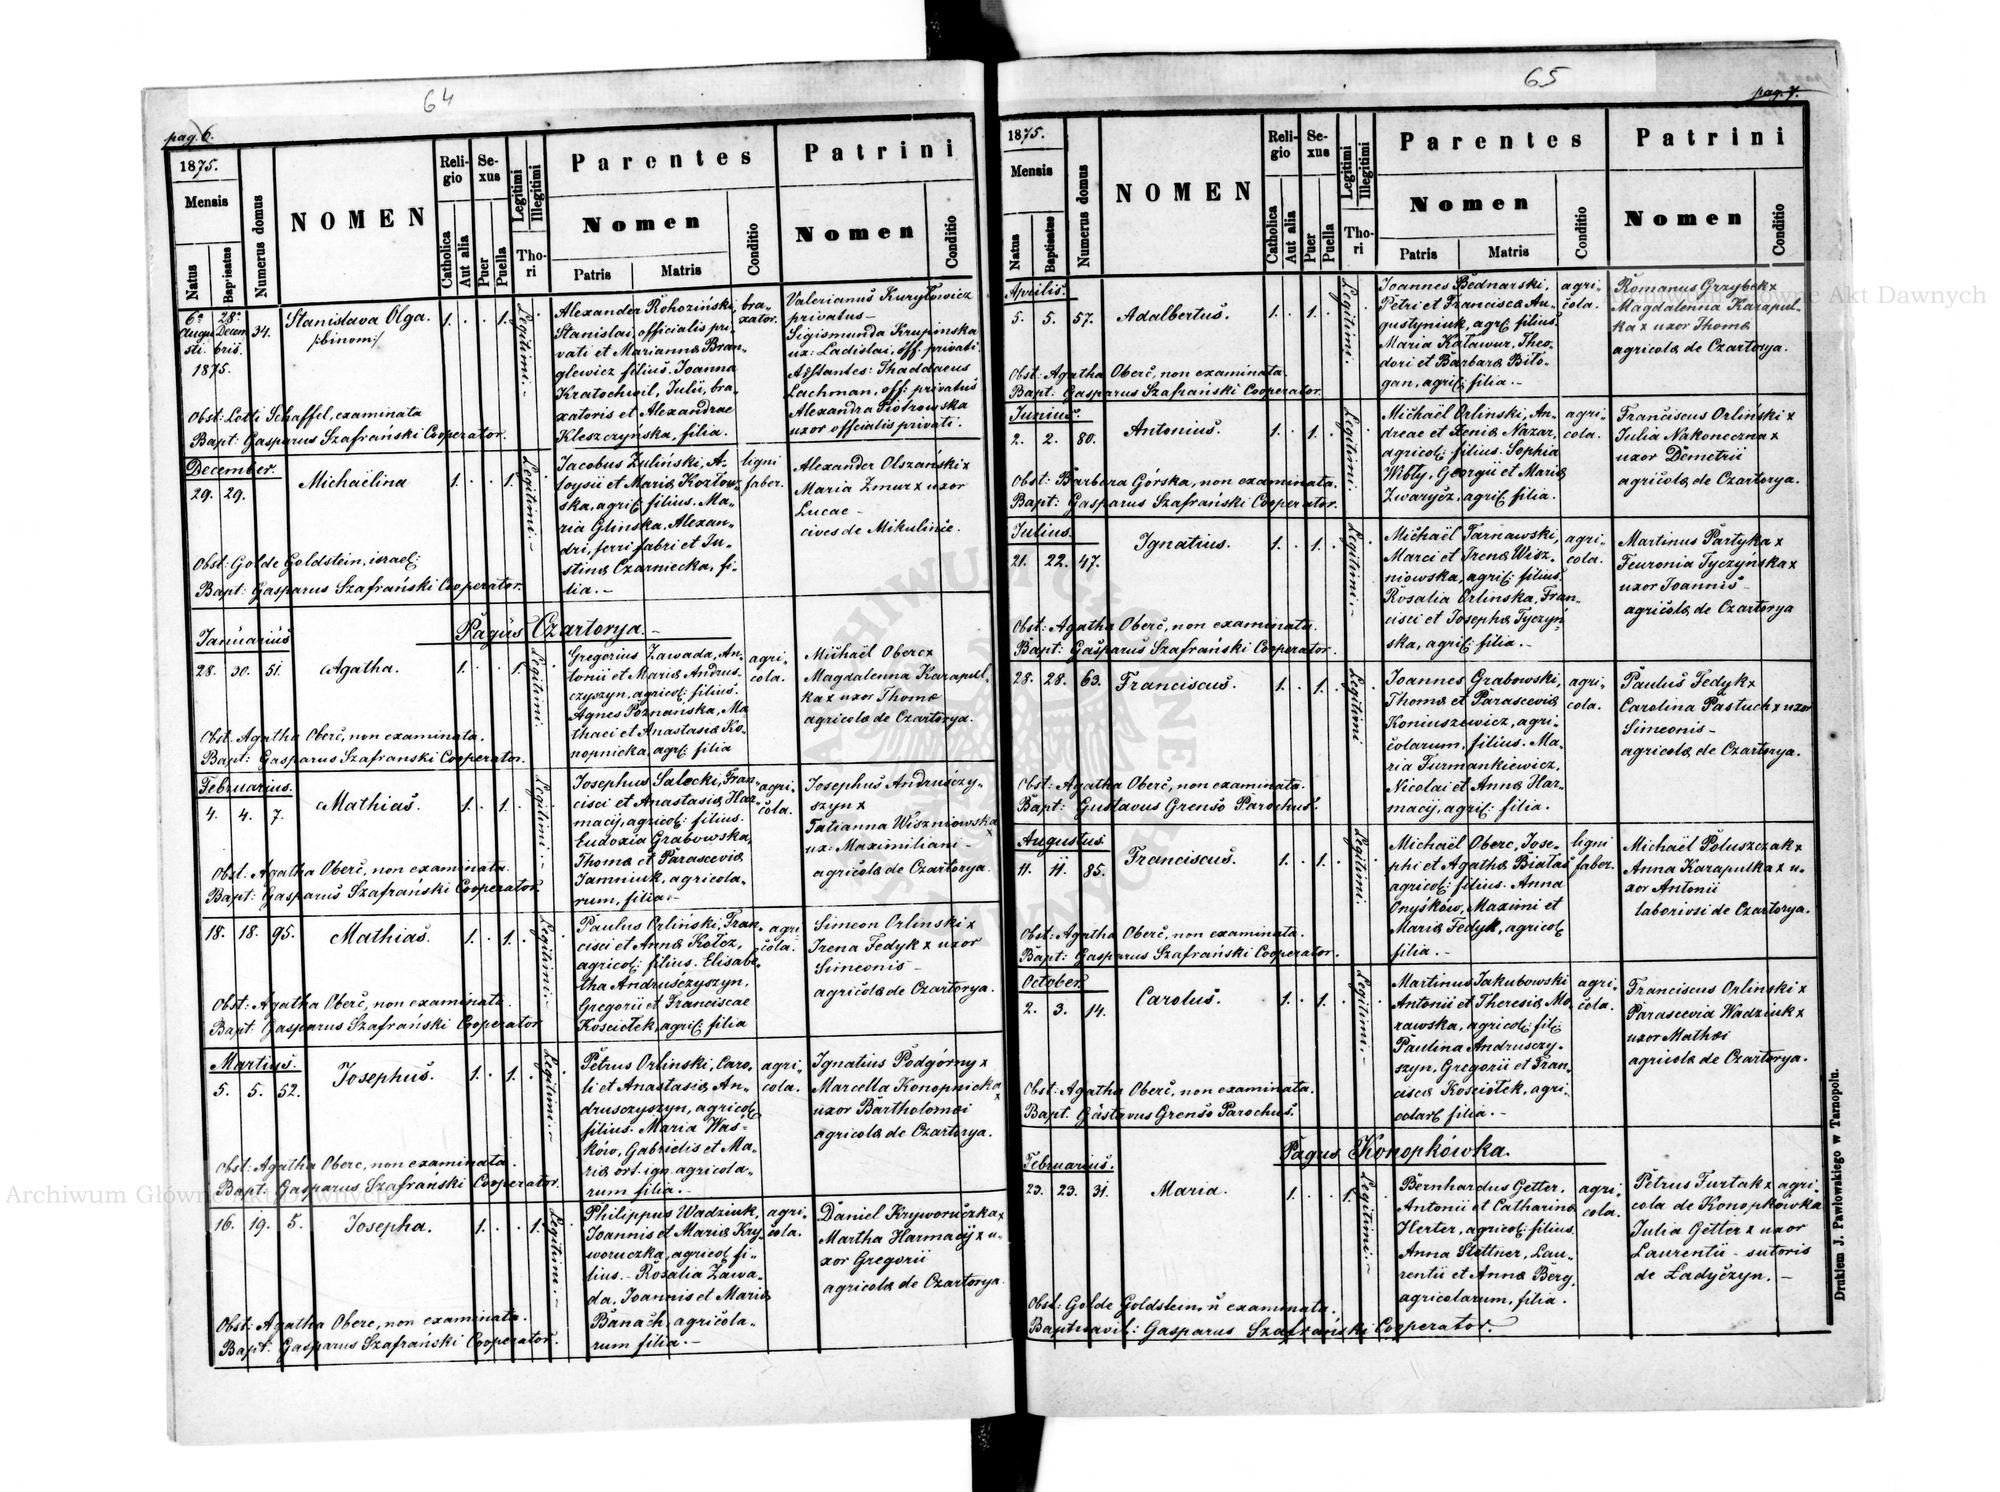 64
pag. 6.
1875.
Mensis
Natus
Baptisatus
Numerus domus
NOMEN
Religio
Catholica
Aut alia
Sexus
Puer
Puella
Legitimi
Illegitimi
Thori
Parentes
Nomen
Patris
Matris
Conditio
Patrini
Nomen
Conditio
6ª 28ª
Augusti Decembris
1875.
34.
Stanislava Olga.
/:binom:/
1. . . 1.
Legitimi.
Alexander Rohoziński,
Stanislai, officialis pri-
vati et Marianna Bran-
glewicz filius. Joanna
Kratochwil, Julii, bra-
xatoris et Alexandrae
Kleszczyńska, filia.
bra-
xator.
Valerianus Kuryłowicz
privatus
Sigismunda Krupinska
ux: Ladislai, off. privati
Assstantes: Thaddaeus
Lachman, off: privatus
Alexandra Piotrowska
uxor officialis privati.
Obst: Lotti Schaffel, examinata
Bapt: Gasparus Szafrański Cooperator.
December.
29. 29.
Michaëlina
1. . . 1.
Legitimi.
Jacobus Zuliński, A-
loysii et Maria Kozłow-
ska, agric: filius. Ma-
ria Glinska, Alexan-
dri, ferri fabri et Ju-
stina Czarniecka, fi-
lia.
ligni
faber.
Alexander Olszański x
Maria Zmur x uxor
Lucae
cives de Mikulinie.
Obst: Golde Goldstein, israel:
Bapt: Gasparus Szafrański Cooperator.
Pagus Czartorya.
Januarius
28. 30. 51.
Agatha.
1. . . 1.
Legitimi.
Gregorius Zawada, An-
tonii et Maria Andrus-
czyszyn, agricol: filius.
Agnes Poznańska, Ma-
thaei et Anastasia Ko-
nopnicka, agric: filia
agri-
cola.
Michaël Oberc x
Magdalenna Karapul-
ka x uxor Thomæ
agricolæ de Czartorya.
Obst. Agatha Oberč, non examinata.
Bapt: Gasparus Szafranski Cooperator.
Februarius.
4. 4. 7.
Mathias.
1. . 1.
Legitimi.
Josephus Salecki, Fran-
cisci et Anastasia Har-
macij, agricol: filius.
Eudoxia Grabowska,
Thomæ et Parascevia
Jamniuk, agricola-
rum, filia.
agri-
cola.
Josephus Andruśczy-
szyn x
Tatianna Wiszniowska
x
ux: Maximiliani
agricolæ de Czartorya.
Obst. Agatha Oberč, non examinata.
Bapt: Gasparus Szafrański Cooperator
18. 18. 95.
Mathias.
1. . 1.
Legitimi.
Paulus Orliński, Fran-
cisci et Anna Kołcz,
agricol: filius. Elisabe-
tha Andruśczyszyn,
Gregorii et Franciscae
Kosciołek, agric: filia
agri
cola.
Simeon Orlinski x
Irena Fedyk x uxor
Simeonis
agricolæ de Czartorya.
Obst: Agatha Oberč, non examinata.
Bapt. Gasparus Szafrański Cooperator
Martius.
5. 5. 52.
Josephus.
1. . 1.
Legitimi.
Petrus Orlinski, Caro-
li et Anastasia An-
drusczyszyn, agricol:
filius. Maria Was-
ków, Gabrielis et Ma-
ria ort. ign. agricola-
rum filia.
agri-
cola.
Ignatius Podgórny x
Marcella Konopnicka
x
uxor Bartholomæi
agricolæ de Czartorya.
Obst: Agatha Oberc, non examinata.
Bapt: Gasparus Szafrański Cooperator.
16. 19. 5.
Josepha.
1. . . 1.
Legitimi.
Philippus Wadziuk,
Joannis et Maria Kry-
woruczka, agricol: fi-
lius. Rozalia Zawa-
da, Joannis et Maria
Banach, agricola-
rum filia.
agri-
cola.
Daniel Kryworuczka x
Martha Harmacij x u-
xor Gregorii
agricolæ de Czartorya
Obst: Agatha Oberc, non examinata.
Bapt: Gasparus Szafrański Cooperator.
65
pag. 7.
1875.
Mensis
Natus
Baptisatus
Numerus domus
NOMEN
Religio
Catholica
Aut alia
Sexus
Puer
Puella
Legitimi
Illegitimi
Thori
Parentes
Nomen
Patris
Matris
Conditio
Patrini
Nomen
Conditio
Aprilis.
5. 5. 57.
Adalbertus.
1. . 1.
Legitimi.
Joannes Bednarski,
Petri et Francisca Au-
gustyniuk, agric: filius.
Maria Kaławur, Theo-
dori et Barbara Biło-
gan, agric: filia.
agri-
cola.
Romanus Grzybek x
Magdalenna Karapul-
ka x uxor Thomæ
agricolæ de Czartorya.
Obst: Agatha Oberč, non examinata.
Bapt: Gasparus Szafrański Cooperator.
Junius.
2. 2. 80.
Antonius.
1. . 1.
Legitimi.
Michaël Orlinski, An-
dreae et Xenia Nazar,
agricol: filius. Sophia
Wibły, Georgii et Maria
Zwarycz, agric: filia.
agri-
cola.
Franciscus Orliński x
Julia Nakoneczna x
uxor Demetrii
agricolæ de Czartorya.
Obst: Barbara Górska, non examinata.
Bapt: Gasparus Szafrański Cooperator.
Julius.
21. 22. 47.
Ignatius.
1. . 1.
Legitimi.
Michaël Tarnawski,
Marci et Irena Wisz-
niowska, agric: filius.
Rosalia Orlinska, Fran-
cisci et Josepha Tyczyń-
ska, agric: filia.
agri-
cola.
Martinus Partyka x
Feuronia Tyczyńska x
uxor Joannis
agricolæ de Czartorya
Obst: Agatha Oberč, non examinata.
Bapt: Gasparus Szafrański Cooperator.
28. 28. 63.
Franciscus.
1. . 1.
Legitimi
Joannes Grabowski,
Thomæ et Parascevia
Koniuszewicz, agri-
colarum, filius. Ma-
ria Furmankiewicz,
Nicolai et Anna Har-
macij, agric: filia.
agri-
cola.
Paulus Fedyk x
Carolina Pastuch x uxor
Simeonis
agricolæ de Czartorya.
Obst: Agatha Oberč, non examinata.
Bapt: Gustavus Grenso Parochus.
Augustus.
11. 11. 85.
Franciscus.
1. . 1.
Legitimi.
Michaël Oberc, Jose-
phi et Agatha Białas
agricol: filius. Anna
Onyśków, Maximi et
Maria Fedyk, agricol:
filia.
ligni
faber.
Michaël Połuszczak x
Anna Karapulka x u-
xor Antonii
laboriosi de Czartorya.
Obst: Agatha Oberč, non examinata.
Bapt: Gasparus Szafrański Cooperator.
October.
2. 3. 14.
Carolus.
1. . 1.
Legitimi.
Martinus Jakubowski
Antonii et Theresia Mo-
rawska, agricol: fil:
Paulina Andrusczy-
szyn, Gregorii et Fran-
cisca Kosciołek, agri-
colar: filia.
agri-
cola.
Franciscus Orlinski x
Parascevia Wadziuk x
uxor Mathæi
agricolæ de Czartorya.
Obst: Agatha Oberč, non examinata.
Bapt. Gustavus Grenso Parochus.
Pagus Konopkówka.
Februarius.
23. 23. 31.
Maria.
1. . . 1.
Legitimi.
Bernhardus Getter,
Antonii et Catharina
Herter, agricol: filius.
Anna Stettner, Lau-
rentii et Anna Berg,
agricolarum, filia.
agri-
cola.
Petrus Furtak x agri-
cola de Konopkówka
Julia Getter x uxor
Laurentii - sutoris
de Ładyczyn.
Obst: Golde Goldstein, ñ examinata.
Baptisavit: Gasparus Szafrański Cooperator.
Drukiem J. Pawłowskiego w Tarnopolu.
Archiwum Główne Akt Dawnych
Archiwum Główne Akt Dawnych